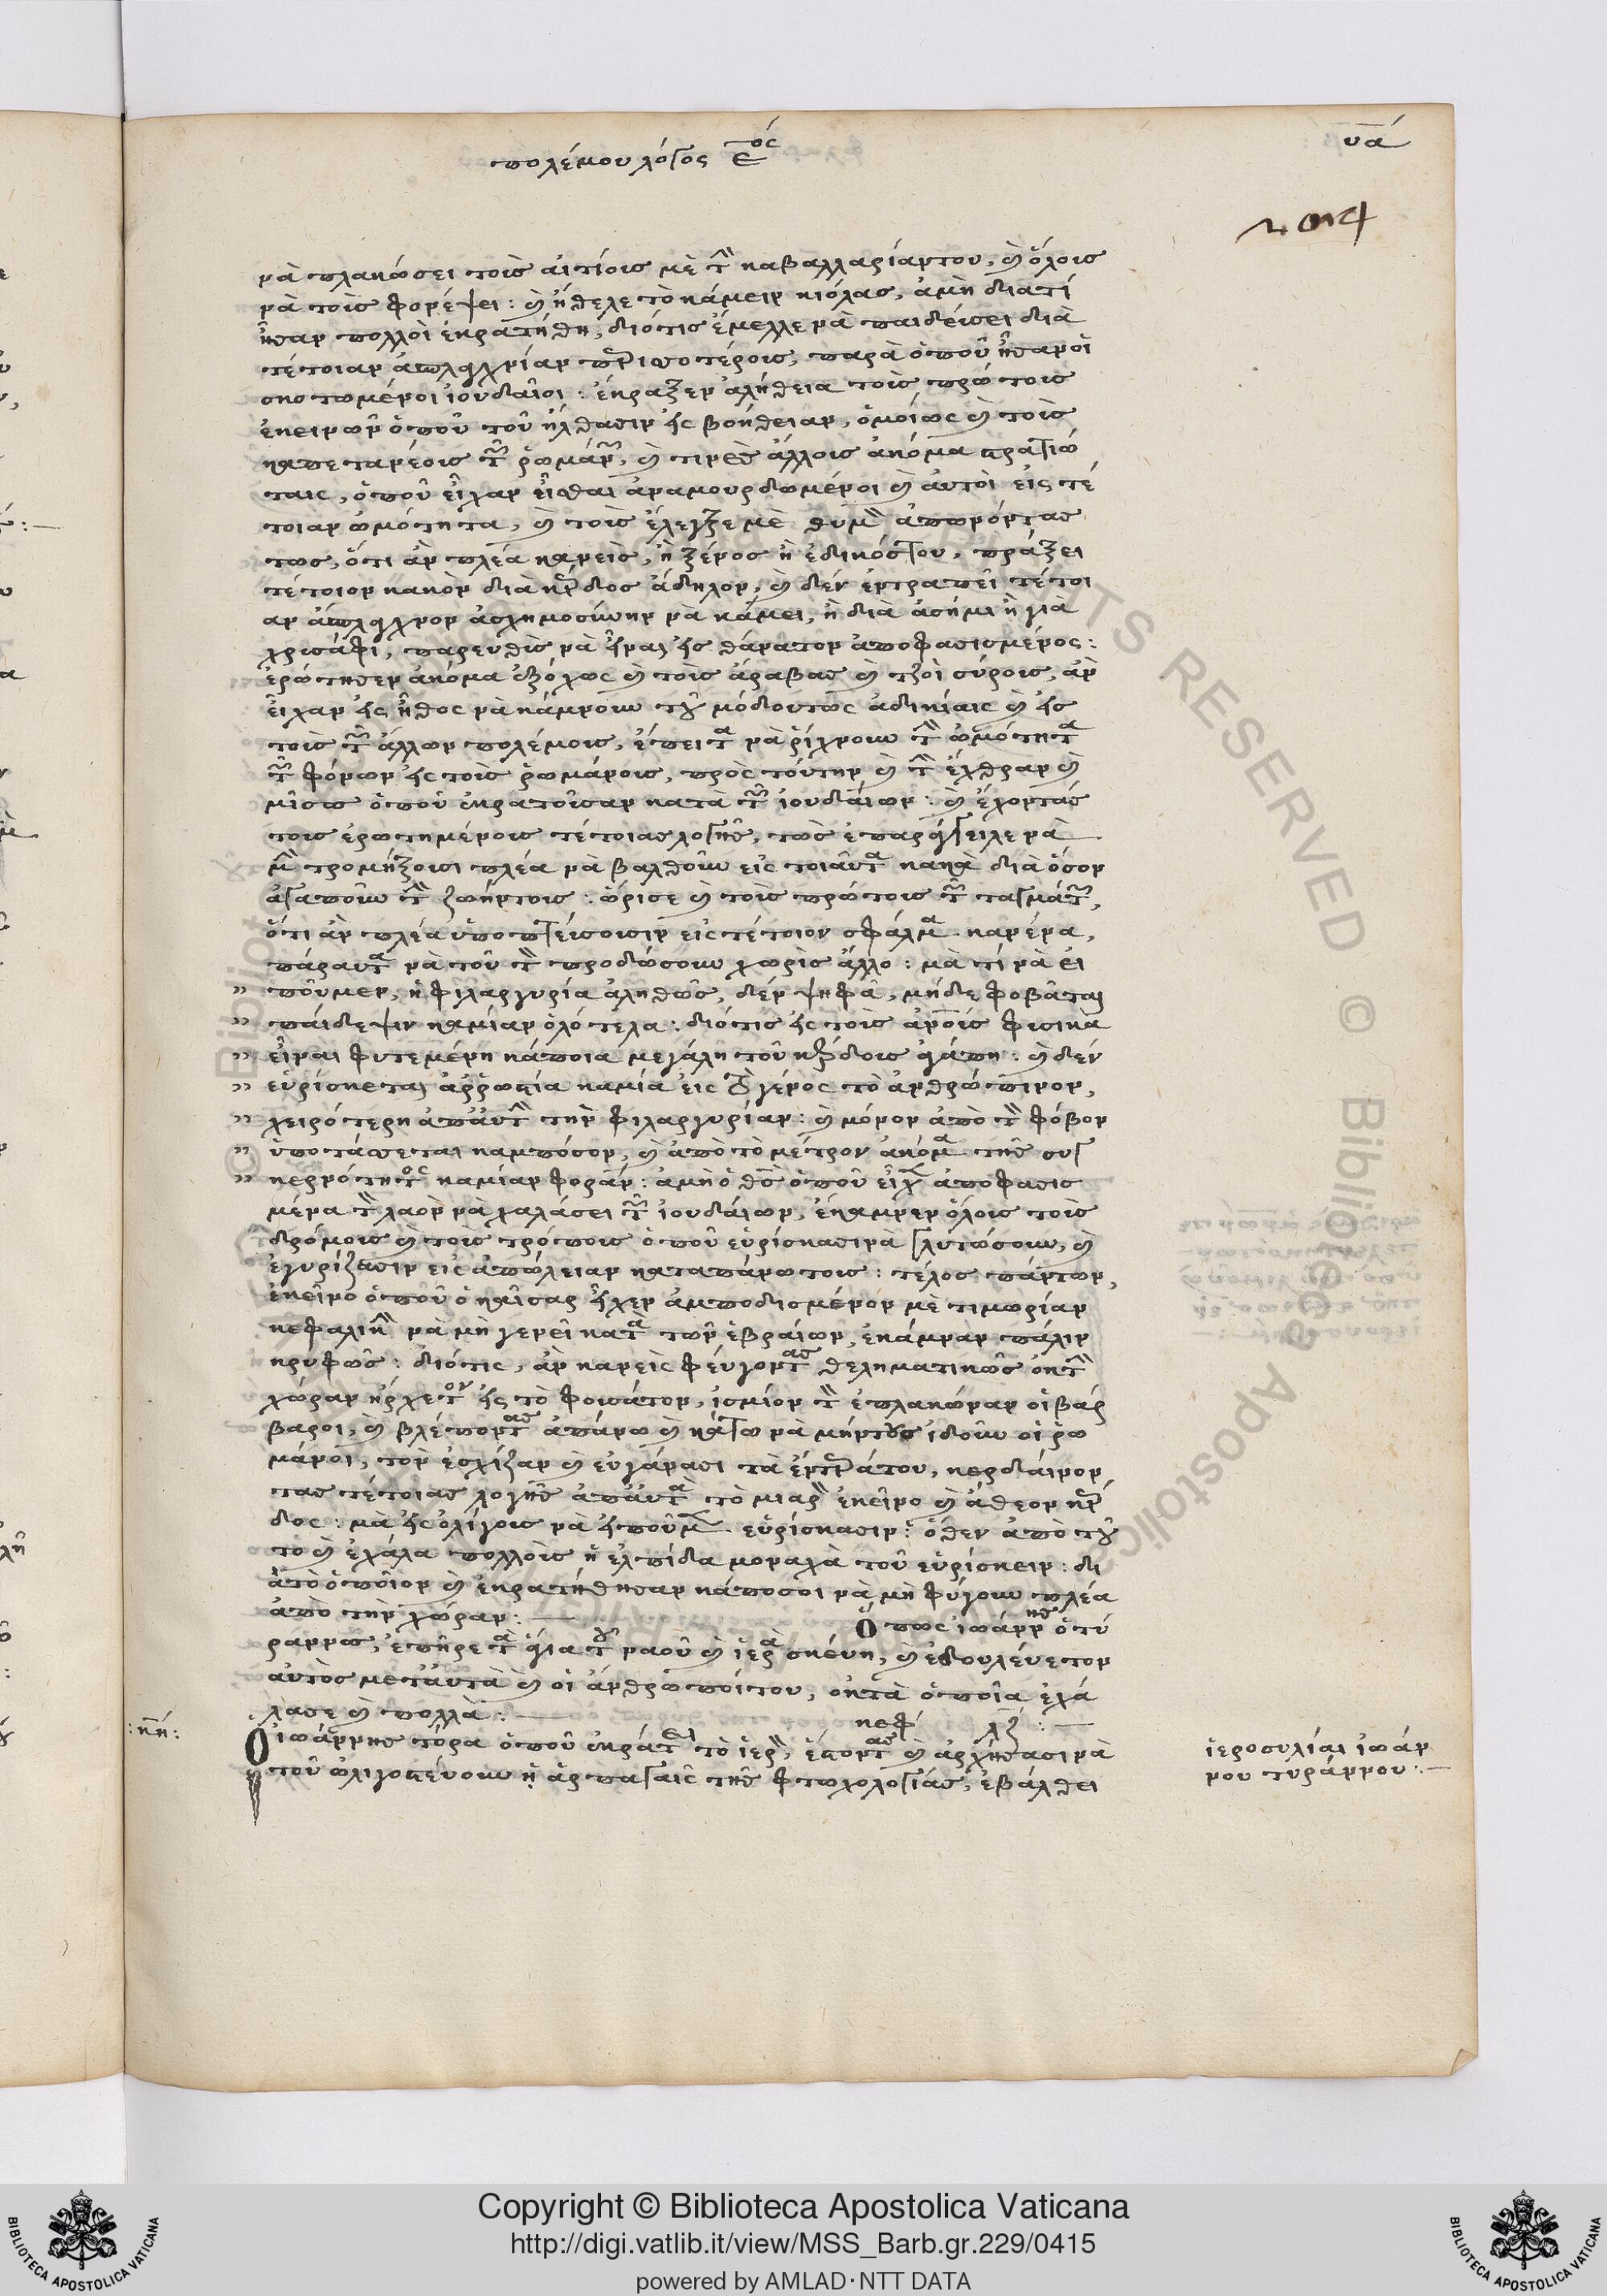 πολέμου λόγος ϛ^ος
υα
νὰ πλακώσει τοὶς αἰτίοις μὲ τὴν καβαλλαρίαντου, καὶ ὅλοις
νὰ τοὶς φονέψει: καὶ ἤθελε τὸ κάμειν κιόλας, ἀμὴ διατί
ἦσαν πολλοὶ ἐκρατήθη, διότις ἔμελλε νὰ παιδεύσει διὰ
τέτοιαν περισσοτέροις, παρὰ ὁποῦ ἦσαν οἱ
σκοτωμένοι ἰουδαῖοι: ἔκραξεν ἀλήθεια τοὶς πρώτοις
ἐκεινῶν ὁποῦ τοῦ ἤλθασιν εἰς βοήθειαν, ὁμοίως καὶ τοὶς
καπετανέοις τῶν ῥωμάνων, καὶ τινὲς ἄλλοις ἀκόμα στρατιώ
ταις, ὁποῦ εἶχαν εἶσθαι ἀναμουρδωμένοι καὶ αὐτοὶ εἰς τέ
τοιαν ὠμότητα, καὶ τοὶς ἔλεγξε μὲ θυμὸν
τως, ὅτι ἂν πλέα κανεὶς, ἢ ξένος ἢ ἐδικόςτου, πράξει
τέτοιον κακὸν διὰ κέρδος ἄδηλον, καὶ δὲν ἐντραπεῖ τέτοι
αν ἀσχημοσύνην νὰ κάμει, ἢ διὰ ἀσήμι ἢ γιὰ
χρισάφι, παρευθὶς νὰ εἶναι εἰς θάνατον ἀποφασισμένος:
ἐρώτησεν ἀκόμα ἐξόχως καὶ τοὶς ἄραβας καὶ τζοὶ σύροις, ἂν
εἶχαν εἰς ἦθος νὰ κάμνουν τοῦ μόδουτως ἀδικίαις καὶ εἰς
τοὶς τῶν ἄλλων πολέμοις, ἔπειτα νὰ ῥίχνουν τὴν ὠμότητα
τῶν φόνων εἰς τοὶς ῥωμάνοις, πρὸς τούτην καὶ τὴν ἔχθραν καὶ
μῖσως ὁποῦ ἐκρατοῦσαν κατὰ τῶν ἰουδαίων: καὶ ἔχοντας
τοις ἐρωτημένοις τέτοιας λογῆς, τῶς ἐπαράγγειλε νὰ
μὴν τρομήξουσι πλέα νὰ βαλθοῦν εἰς τοιαῦτα κακὰ διὰ ὅσον
ἀγαποῦν τὴν ζωήντοις: ὥρισε καὶ τοὶς πρώτοις τῶν ταγμάτων,
ὅτι ἂν πλέα ὑποπτεύσουσιν εἰς τέτοιον σφάλμα κανένα,
πάραυτα νὰ τοῦ τὸν προδώσουν χωρὶς ἄλλο: μὰ τί νὰ εἰ
ποῦμεν, ἡ φιλαργυρία ἀληθῶς, δὲν ψηφᾶ, μήδε φοβᾶται
παίδεψιν καμίαν ὁλότελα: διότις εἰς τοὶς ἀνθρώποις φισικὰ
εἶναι φυτεμένη κάποια μεγάλη τοῦ κέρδοις ἀγάπη: καὶ δὲν
εὑρίσκεται ἀρρωστία καμία εἰς τὸ γένος τὸ ἀνθρώπινον,
χειρότερη ἀπαύτὴν τὴν φιλαργυρίαν: καὶ μόνον ἀπὸ τὸν φόβον
ὑποτάσεται καμπόσον, καὶ ἀπὸ τὸ μέτρον ἀκόμα τῆς συγ
κερνότητος καμίαν φορὰν: ἀμὴ ὁ θεὸς ὁποῦ εἶχεν ἀποφασισ
μένα τὸν λαὸν νὰ χαλάσει τῶν ἰουδαίων, ἔκαμνεν ὅλοις τοὶς
δρόμοις καὶ τοὶς τρόποις ὁποῦ εὑρίσκασι νὰ γλυτώσουν, καὶ
ἐγυρίζασιν εἰς ἀπώλειαν καταπάνωτοις: τέλος πάντων,
ἐκεῖνο ὁποῦ ὁ καῖσαρ εἶχεν ἀμποδισμένον μὲ τιμωρίαν
κεφαλικὴν νὰ μὴ γενεῖ κατὰ τῶν ἑβραίων, ἐκάμναν πάλιν
κρυφῶς: διότις, ἂν κανεὶς φεύγοντας θεληματικῶς ἐκ τὴν
χώραν ἤρχετον εἰς τὸ φουσάτον, ἰσμίον τὸν ἐπλακώναν οἱ βάρ
βαροι, καὶ βλέποντας ἀπάνω καὶ κάτω νὰ μήντους ἰδοῦν οἱ ῥω
μάνοι, τὸν ἐσχίζαν καὶ εὐγάνασι τὰ ἔντεράτου, κερδαίνον
τας τέτοιας λογῆς ἀπαύτὰ τὸ μιαρὸν ἐκεῖνο καὶ ἄθεον κέρ
δος: μὰ εἰς ὀλίγοις νὰ εἰποῦμεν εὑρίσκασιν: ὅθεν ἀπὸ τοῦ
το καὶ ἐχάλα πολλοὶς ἡ ἐλπίδα μοναχὰ τοῦ εὑρίσκειν: δι
ἀτὸ ὁποῖον καὶ ἐκρατήθησαν κάποσοι νὰ μὴ φύγουν πλέα
ἀπὸ τὴν χώραν:
Ὅπως ἰωάννης ὁ τύ
ραννος, ἐπῆρε τὰ ἅγια τοῦ ναοῦ καὶ ἱερὰ σκέυη, καὶ ἐδουλέυετον
αὐτὸς μεταυτὰ καὶ οἱ ἀνθρώποίτου, ἐκτὰ ὁποῖα ἐχά
λασε καὶ πολλὰ:
κεφ λζ:
:κη:
Ὁ ἰωάννης τόρα ὁποῦ ἐκράτει τὸ ἱερὸν, ἔστοντας καὶ ἀρχήσασι νὰ
τοῦ ὠλιγοστέυουν ᾑ ἁρπαγαὶς τῆς φτωχολογιᾶς, ἐβάλθει
ἱεροσυλίαι ἰωάν
νου τυράννου:
Copyright © Biblioteca Apostolica Vaticana
http://digi.vatlib.it/view/MSS_Barb.gr.229/0415
powered by AMLAD·NTT DATA
BIBLIOTECA APOSTOLICA VATICANA
BIBLIOTECA APOSTOLICA VATICANA